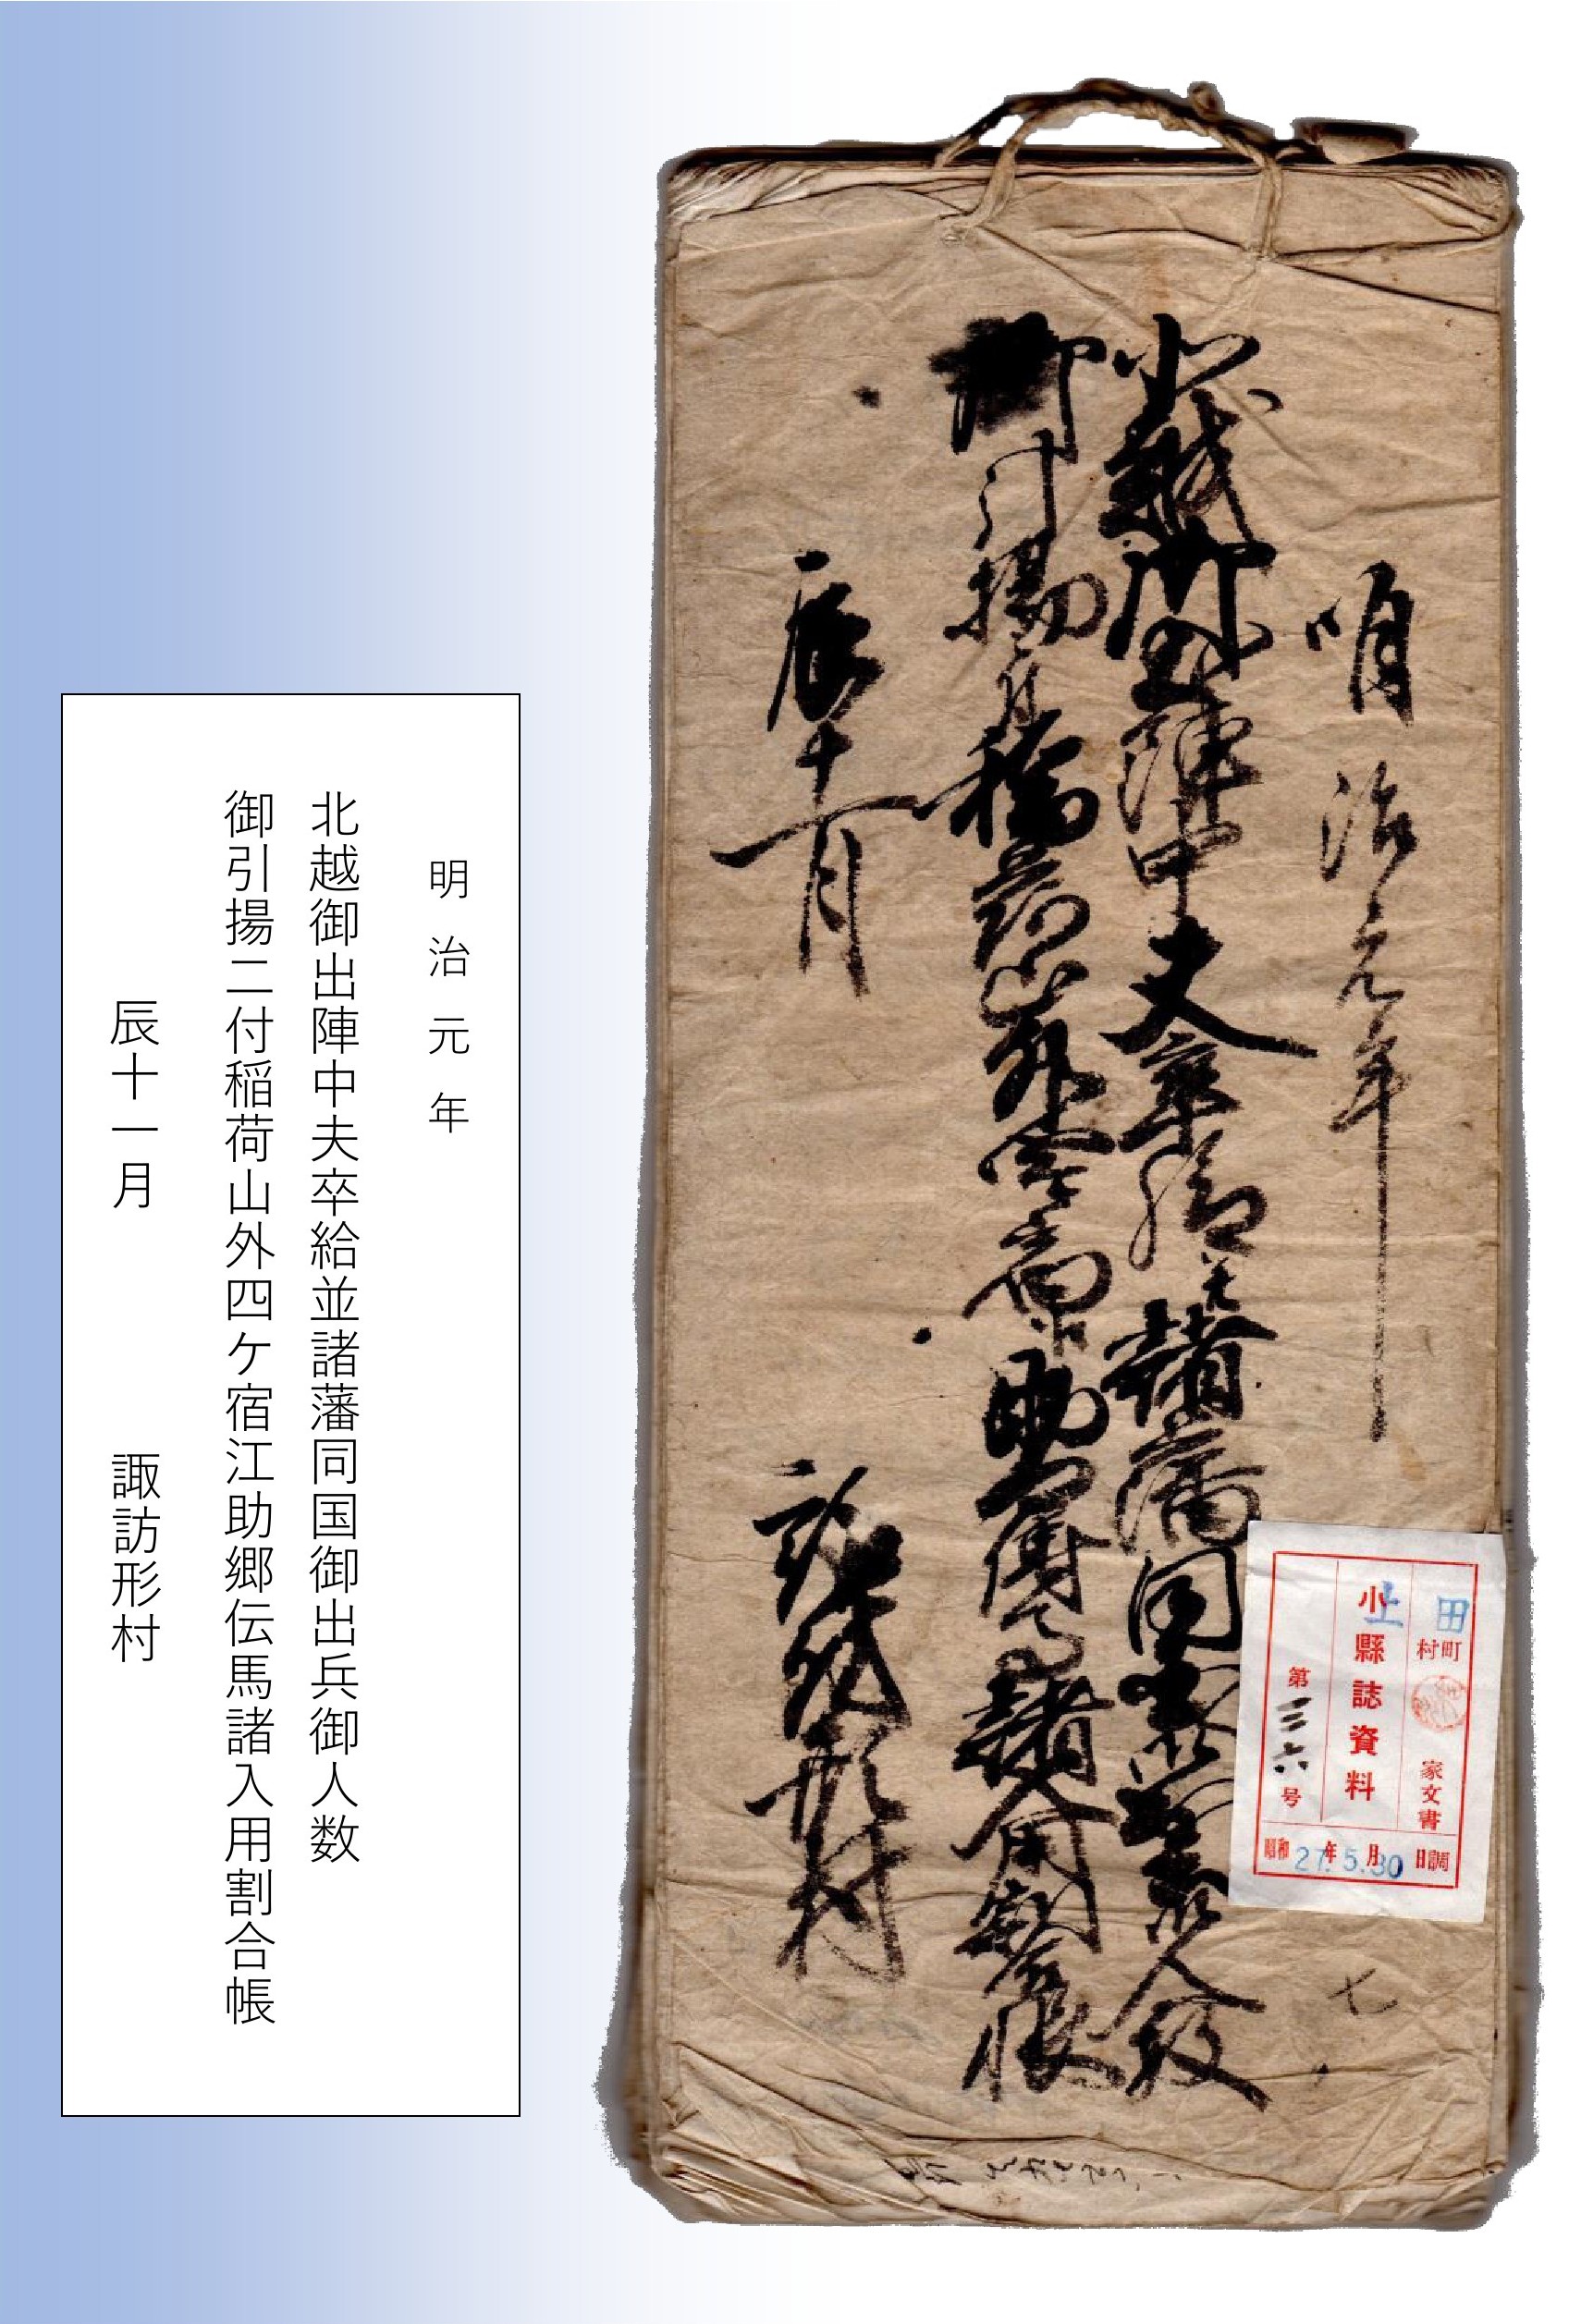 明治元年
北越御出陣中夫卒給並諸藩同国御出兵御人数
御引揚二付稲荷山外四ケ宿江助郷伝馬諸入用割合帳
辰十一月
諏訪形村
田
村町
家文書
上
小縣誌資料
第三六号
昭和27年5月30日調
七
明治元年
北越御出陣中夫卒給並諸藩同国御出兵御人数
御引揚二付稲荷山外四ケ宿江助郷伝馬諸入用割合帳
辰十一月 諏訪形村